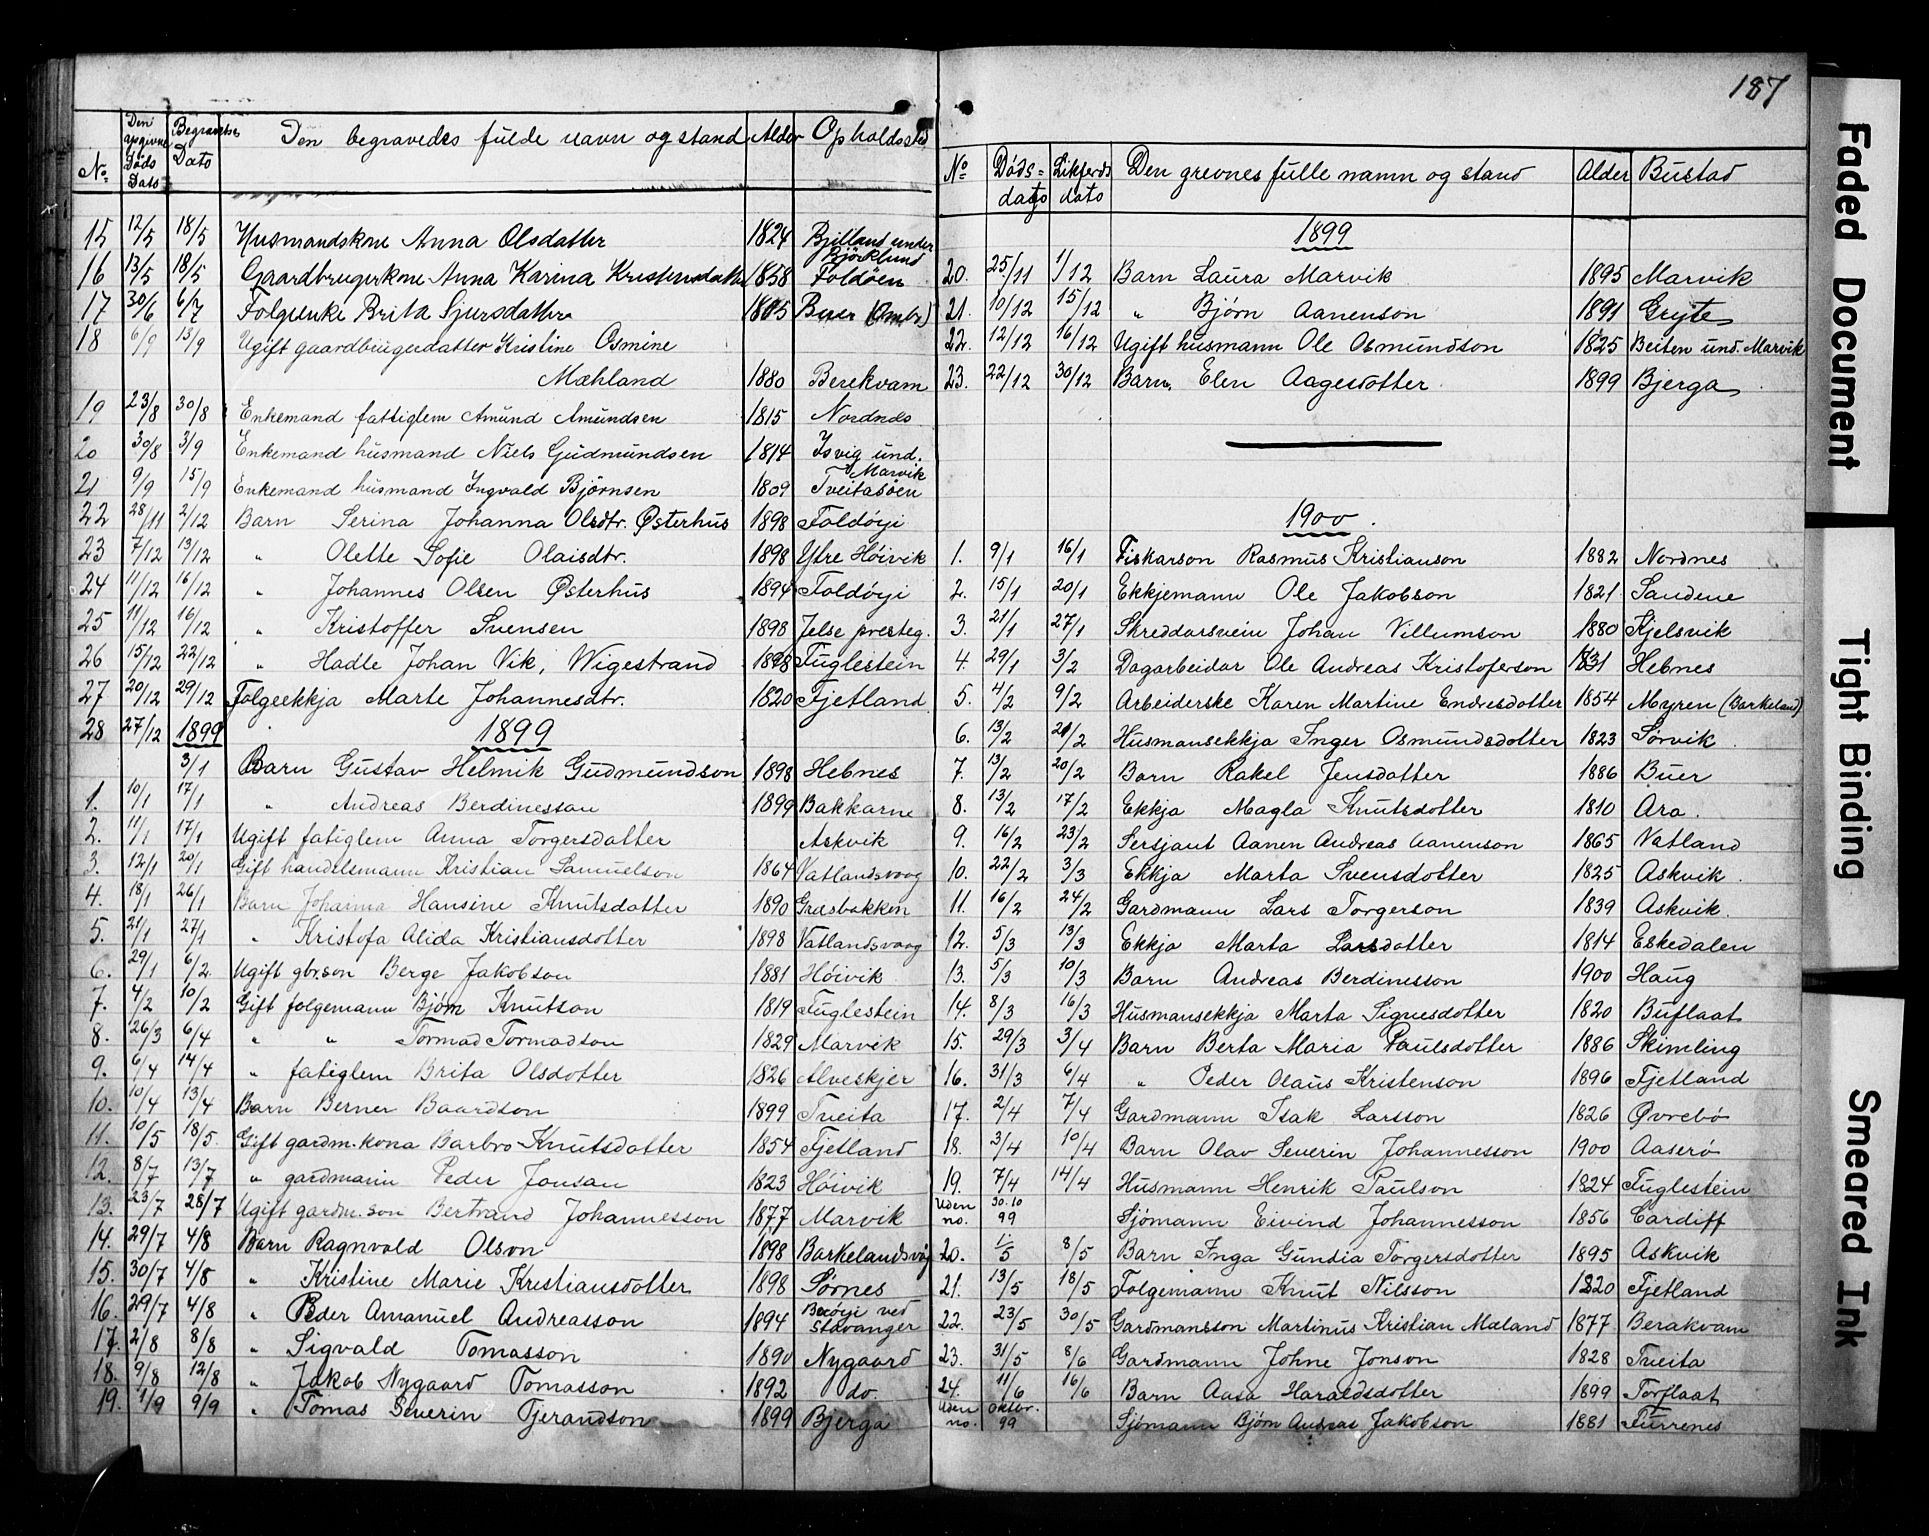 No. Den opgivne Døds Dato Begravelses Dato Den begravedes fulde navn og stand Alder Opholdssted
15 12/5 18/5 Husmandskne Anna Olsdatter 1824 Bjelland under Bjørklund
16 13/5 18/5 Gaardbrugerkne Anna Karina Kristensdatter 1858 Foldøen
17 30/6 6/7 Folgeenke Brita Sjursdatter 1815 Buer (Ombr.)
18 6/9 13/9 Ugift gaardbrugerdatter Kristine Osmine
Mæhland 1880 Berekvam
19 23/8 30/8 Enkemand fattiglem Amund Amundsen 1815 Nordnes
20 30/8 3/9 Enkemand husmand Niels Gudmundsen 1814 Isvig und. Marvik
21 9/9 15/9 Enkemand husmand Ingvald Bjørnsen 1809 Tveitasøen
22 28/11 2/12 Barn Serina Johanna Olsdtr. Østerhus 1898 Foldøyi
23 7/12 13/12 " Olette Sofie Olaisdtr. 1898 Ytre Høivik
24 11/12 16/12 " Johannes Olsen Østerhus 1894 Foldøyi
25 11/12 16/12 " Kristoffer Svensen 1898 Jelse presteg.
26 15/12 22/12 " Hadle Johan Vik, Wigestrand 1898 Fuglestein
27 20/12 29/12 Folgeekkja Marte Johannesdtr. 1820 Tjetland
28 27/12 1899 1899
3/1 Barn Gustav Helmik Gudmundson 1898 Hebnes
1. 10/1 17/1 " Andreas Berdinesson 1899 Bakkarne
2. 11/1 17/1 Ugift fatiglem Anna Torgersdatter Askvik
3. 12/1 20/1 Gift handelsmann Kristian Samuelson 1864 Vatlandsvaag
4. 18/1 26/1 Barn Johanna Hansine Knutsdatter 1890 Graasbakken
5. 21/1 27/1 " Kristofa Alida Kristiansdotter 1898 Vatlandsvaag
6. 29/1 6/2 Ugift gbr.son Berge Jakobson 1881 Høivik
7. 4/2 10/2 Gift folgemann Bjørn Knutson 1819 Fuglestein
8. 26/3 6/4 " " Tormod Tormodson 1829 Marvik
9. 6/4 14/4 " fatiglem Brita Olsdotter 1826 Alveskjer
10. 10/4 13/4 Barn Berner Baardson 1899 Tveita
11. 10/5 18/5. Gift gardm.kona Barbro Knutsdotter 1854 Tjetland
12. 8/7 13/7 " gardmann Peder Jonson 1823 Høivik
13. 23/7 28/7 Ugift gardm.son Bertrand Johannesson 1877 Marvik
14. 29/7 4/8 Barn Ragnvald Olson 1898 Barkelandsvåg
15. 30/7 4/8 " Kristine Marie Kristiansdotter 1898 Sørnes
16. 29/7 4/8 " Peder Amanuel Andreasson 1894 Buøyi ved Stavanger
17. 2/8 8/8 " Sigvald Tomasson 1890 Nygaard
18. 9/8 12/8 " Jakob Nygaard Tomasson 1892 do.
19. 1/9 9/9 " Tomas Severin Tjerandson 1899 Bjerga
187
No Døds=dato Likferds dato Den grevnes fulle namn og stand Alder Bustad
1899
20. 25/11 1/12 Barn Laura Marvik 1895 Marvik
21. 10/12 15/12 " Bjørn Aanenson 1891 Gryte
22. 12/12 16/12 Ugift husmann Ole Osmundson 1825 Beiten und. Marvik
23. 22/12 30/12 Barn Elen Aagesdotter 1899 Bjerga
1900.
1. 9/1 16/1 Fiskarson Rasmus Kristianson 1882 Nordnes
2. 15/1 20/1 Ekkjemann Ole Jakobson 1821 Sandene
3. 21/1 27/1 Skreddarsvein Johan Villumson 1880 Kjelsvik
4. 29/1 3/2 Dagarbeidar Ole Andreas Kristoferson 1831 Hebnes
5. 4/2 9/2 Arbeiderske Karen Martine Endresdotter 1854 Myren (Barkeland)
6. 13/2 21/2 Husmansekkja Inger Osmundsdotter 1823 Sørvik.
7. 13/2 20/2 Barn Rakel Jensdotter 1886 Buer
8. 13/2 17/2 Ekkja Magla Knutsdotter 1810 Ara.
9. 16/2 23/2 Sersjant Aanen Andreas Aanenson 1865 Vatland
10. 22/2 3/3 Ekkja Marta Svensdotter 1825 Askvik.
11. 16/2 24/2 Gardmann Lars Torgerson 1839 Askvik.
12. 5/3 13/3 Ekkja Marta Larsdotter 1814 Eskedalen
13. 5/3 10/3 Barn Andreas Berdinesson 1900 Haug
14. 8/3 16/3 Husmansekkja Marta Signesdotter 1820 Buflaat
15. 29/3 3/4 Barn Berta Maria Paulsdotter 1886 Skimling
16. 31/3 6/4 " Peder Olaus Kristenson 1896 Tjetland
17. 2/4 7/4 Gardmann Isak Larsson 1826 Øvrebø
18. 3/4 10/4 Barn Olav Severin Johannesson 1900 Aaserø
19. 7/4 14/4 Husmann Henrik Paulson 1824 Fuglestein
Uden no. 30.10 99 Sjømann Eivind Johannesson 1856 Cardiff
20. 1/5 8/5 Barn Inga Gundia Torgersdotter 1895 Askvik
21. 13/5 18/5 Folgemann Knut Nilsson 1820 Tjetland
22. 23/5 30/5 Gardmansson Martinus Kristian Mæland 1877 Berakvam
23. 31/5 8/6 Gardmann Johne Jonson 1828 Tveita
24. 11/6 16/6 Barn Aasa Haraldsdotter 1899 Torflaat
Uden no. Oktbr. 99 Sjømann Bjørn Andreas Jakobson 1881 Furrenes
Faded Document
Tight Binding
Smeared Ink